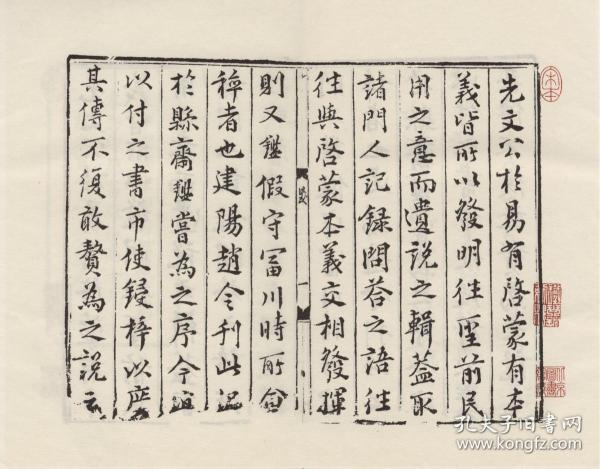 先文公於易有啓蒙有本
義皆所以發明往聖前民
用之意而遺說之輯蓋取
諸門人記録問荅之語往
往與啓蒙本義交相發揮
則又鑑假守冨川時所會
稡者也建陽趙令刋此
於縣齋鑑嘗為之序今
以付之書市使鋟梓以
其傳不復敢贅為之說云
孔夫子旧书网
www.kongfz.com